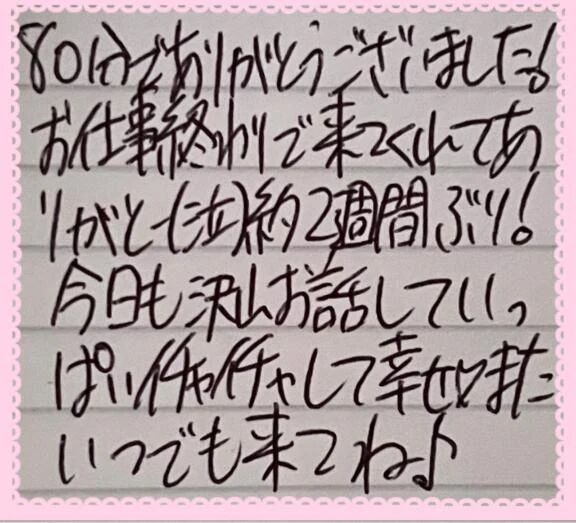 80分でありがとうございました!
お仕事終わりで来てくれてあ
りがとー(泣)約2週間ぶり!
今日も沢山お話していっ
ぱいイチャイチャして幸せ♡また
いつでも来てね♪